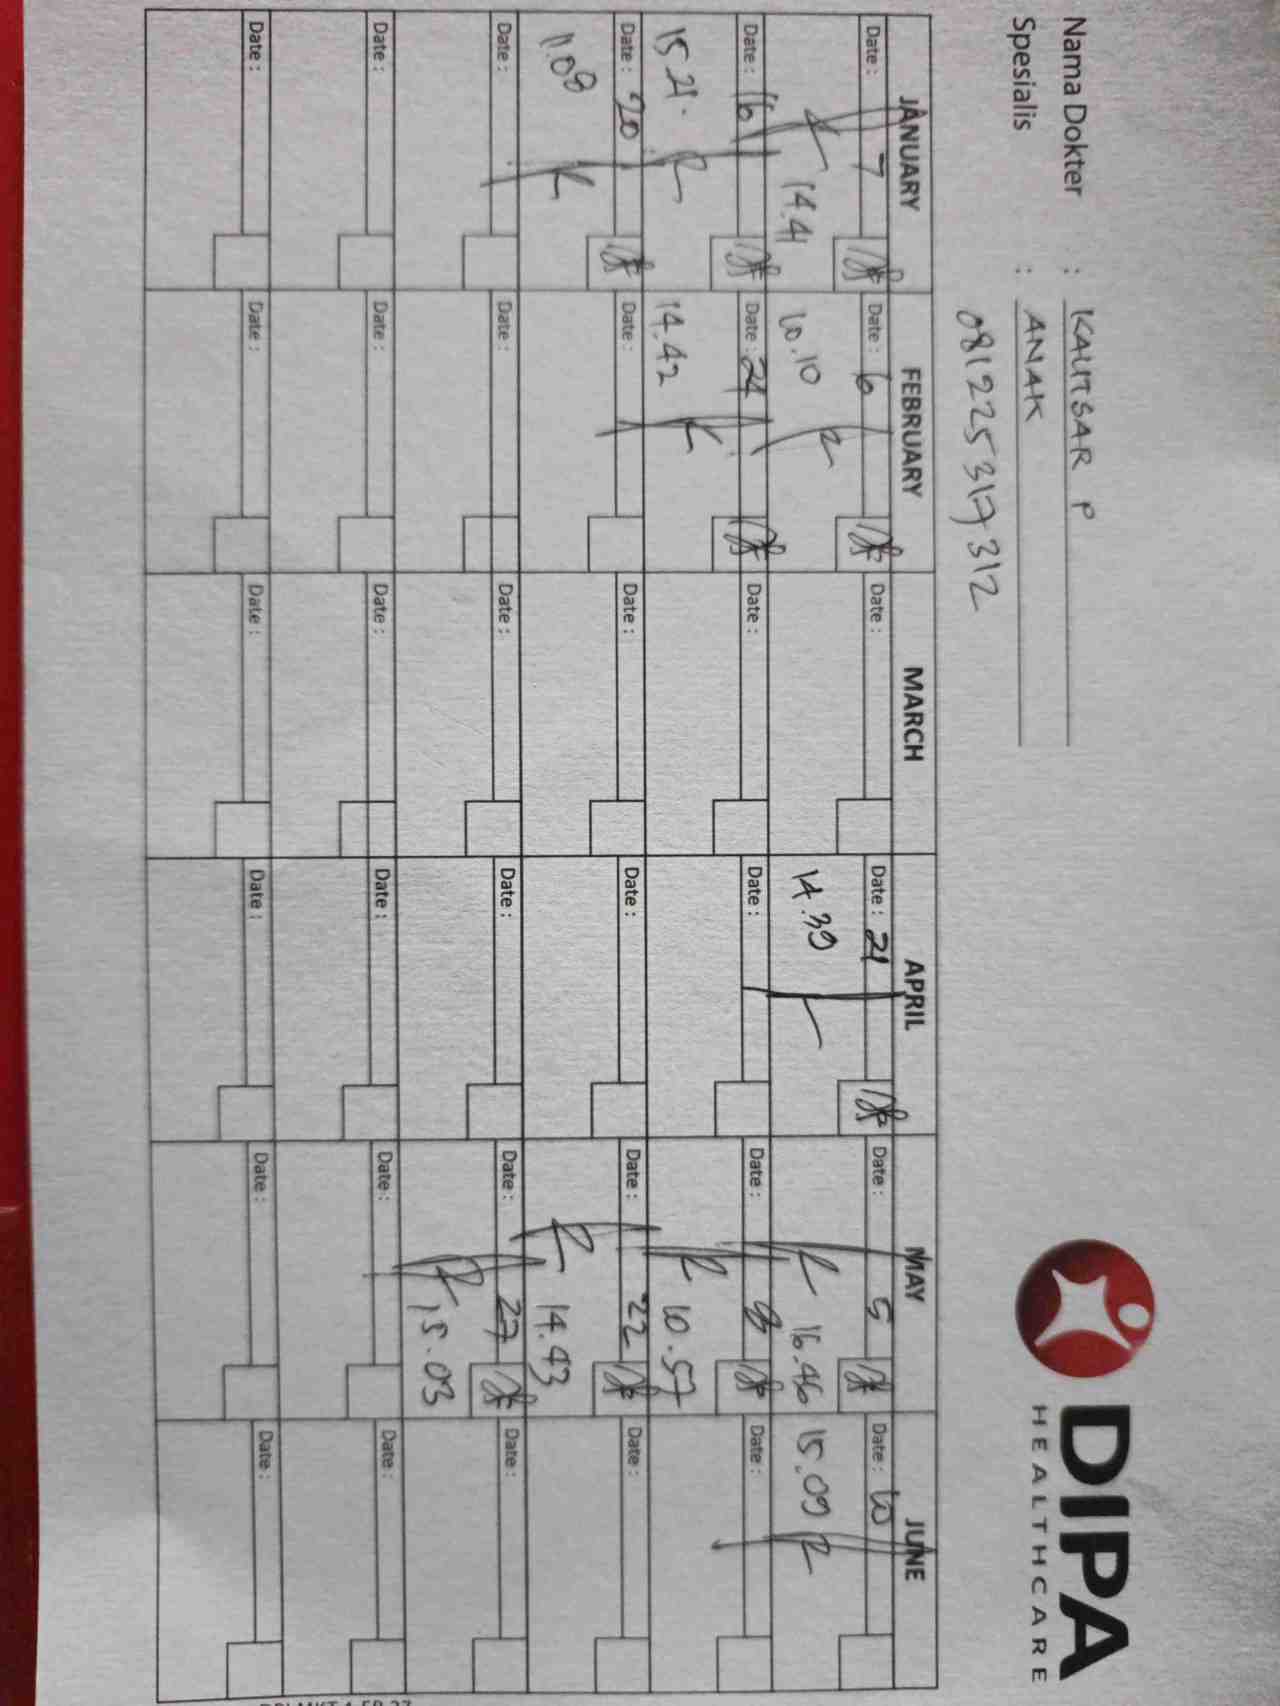 DIPA
HEALTHCARE
Nama Dokter : KAUTSAR P
Spesialis : ANAK
081225317312
JANUARY FEBRUARY MARCH APRIL MAY JUNE
Date : 7 Date : 6 Date : Date : 21 Date : 5 Date : 10
14.41 10.10 14.39 16.46 15.09
Date : 16 Date : 24 Date : Date : Date : 8 Date :
15.21 14.42 10.57
Date : 20 Date : Date : Date : Date : 22 Date :
11.08 14.43
Date : Date : Date : Date : Date : 27 Date :
15.03
Date : Date : Date : Date : Date : Date :
Date : Date : Date : Date : Date : Date :